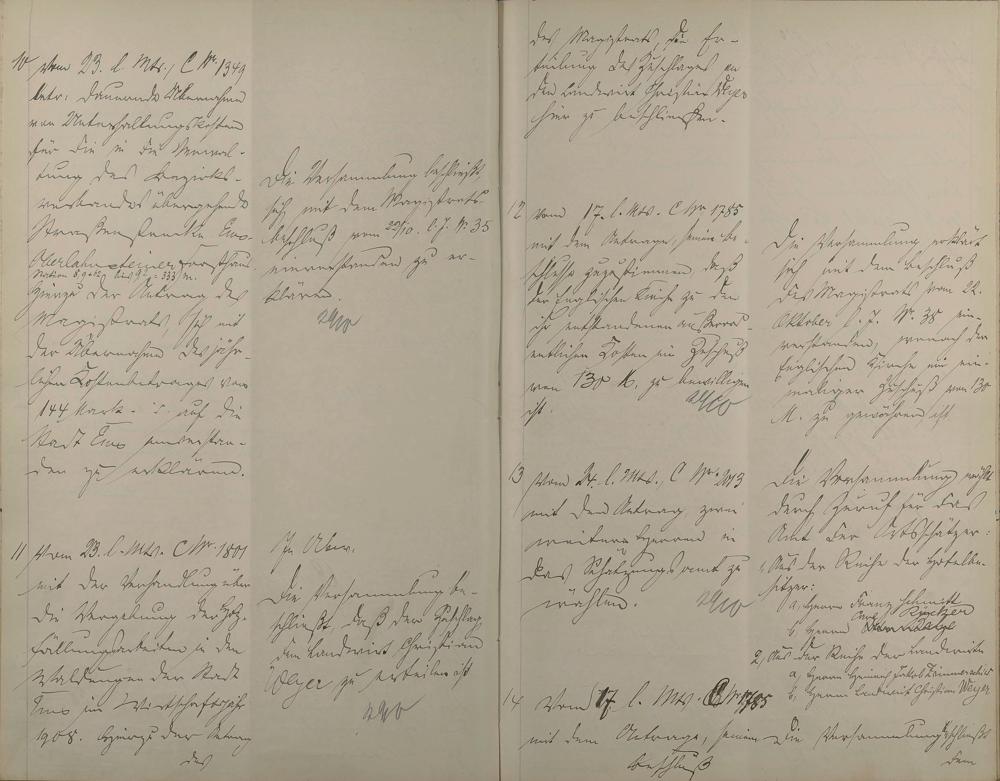 10 Vom 23. l. Mts., C Nr. 1349
betr. dauernde Übernahme
von Unterhaltungskosten
für die in die Verwal-
tung des Bezirks-
verbandes übergehende
Straßenstrecke Ems-
Oberlahnsteiner Forsthaus
Station 8,9+12 bis 9,2 = 333 m.
Hierzu der Antrag des
Magistrats sich mit
der Übernahme des jähr-
lichen Kostenbetrages von
144 Mark auf die
Stadt Ems einverstan-
den zu erklären.
Die Versammlung beschließt,
sich mit dem Magistrats-
beschluß vom 22/10. l. J. Nr. 35
einverstanden zu er-
klären.
11 Vom 23. l. Mts. C Nr. 1801
mit der Verhandlung über
die Vergebung der Holz-
fällungsarbeiten in den
Waldungen der Stadt
Ems im Wirtschaftsjahr
1908. Hierzu der Antrag
des
Zu Über.
Die Versammlung be-
schließt, daß der Zuschlag
dem Landwirt Christian
Weyer zu erteilen ist
des Magistrats, die Er-
teilung des Zuschlages an
den Landwirt Christian Weyer
hier zu beschließen.
12 Vom 17. l. Mts. C Nr 1785
mit dem Antrage, seinem Be-
schlusse zuzustimmen, daß
der Englischen Kirche zu den
ihr entstandenen außeror-
dentlichen Kosten ein Zuschuß
von 130 M. zu bewilligen
ist.
Die Versammlung erklärt
sich mit dem Beschluß
des Magistrats vom 22.
Oktober l. J. Nr. 38 ein-
verstanden, wonach der
Englischen Kirche ein ein-
maliger Zuschuß von 130
M. zu gewähren ist
13 Vom 24. l. Mts., C Nr. 2013
mit dem Antrag, zwei
weitere Herren in
das Schätzungsamt zu
wählen.
Die Versammlung wählt
durch Zuruf für das
Amt der Ortsschätzer:
1, Aus der Reihe der Hotelbe-
sitzer:
a, Herrn Franz Schmitt
Carl Rücker
b, Herrn
2, Aus der Reihe der Landwirte
a, Herrn Heinrich Jakob
b, Herrn Landwirt Christian Weyer
14 Vom 17. l. Mts. C Nr 1785
mit dem Antrage, seinem
Beschluß
Die Versammlung beschließt
dem